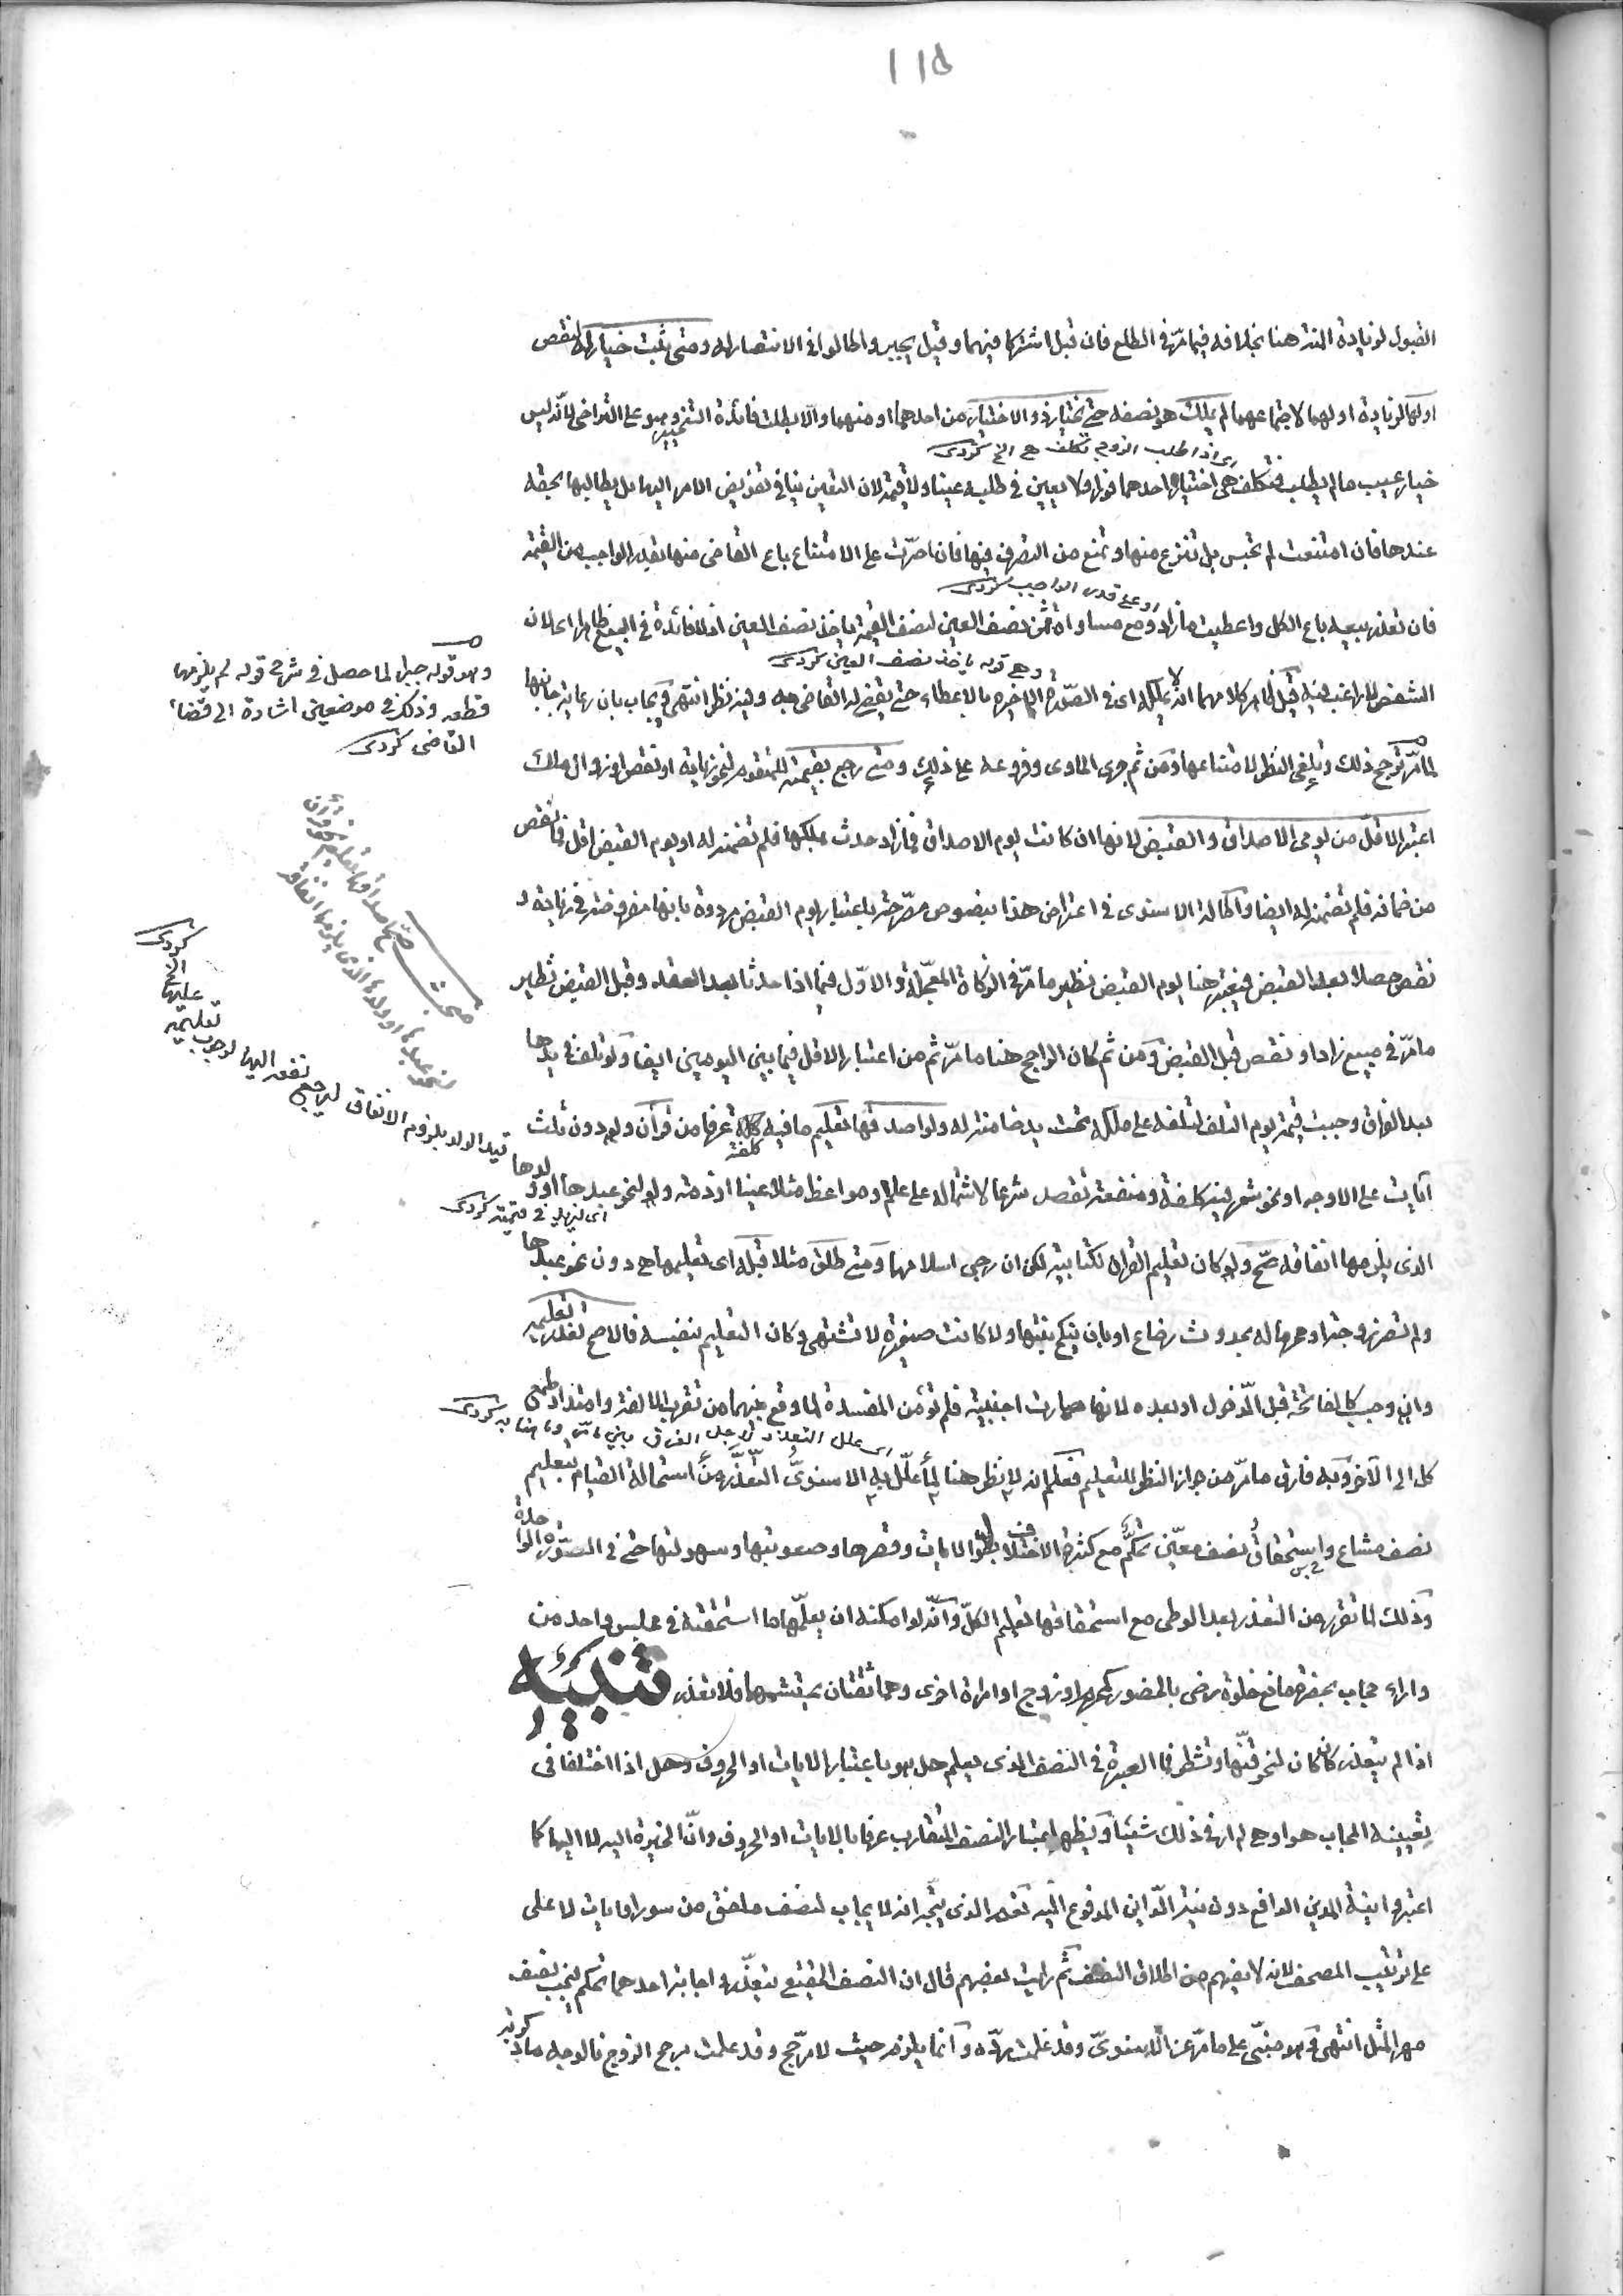 القبول لزيادة المنة هنا بخلافه فيما مرّ فى الطلع فان قبل اشتركا فيهما وقيل يجبر واطالوا فى الانتصار له ومتى ثبت خيار له لنقص
اولها لزيادة او لهما لاجتماعهما لم يملك هو نصفه حتى يختار ذو الاختيار من احدهما او منهما والّا بطلت فائدة التخيير وهو على التراخى لانّه ليس
اى اذا طلب الزوج تكلف هى الخ كردى
خيار عيب ما لم يطلب فتكلف هى اختيار احدهما فورا ولا يعين فى طلبه عينا ولا قيمة لان التعيين ينافى تفويض الامر اليها بل يطالبها بحقه
عندها فان امتنعت لم تحبس بل تنزع منها وتمنع من التصرف فيها فان اصرّت على الامتناع باع القاضى منها بقدر الواجب من القيمة
او على قدر الواجب كردى
فان تعذر بيعه باع الكل واعطيت ما زاد ومع مساواة ثمن نصف العين لنصف القيمة ياخذ نصف العين اذ لا فائدة فى البيع ظاهرا اى لان
وهى قوله ياخذ نصف العين كردى
الشقص لا راغب فيه قيل ظاهر كلامهما انه لا يملكه اى فى الصورة الاخيرة بالاعطاء حتى يقضى له القاضى به وفيه نظر انتهى ويجاب بان رعاية جانبها
لما مرّ ترجح ذلك وتلغى النظر لامتناعها ومن ثم جرى الحاوى وفروعه على ذلك ومتى رجع بقيمة للمتقوم لنحو زيادة او نقص او زوال ملك
اعتبر الاقلّ من يومى الاصداق والقبض لانها ان كانت يوم الاصداق فما زاد حدث بملكها فلم تضمنه له او يوم القبض اقل فما نقص
من ضمانه فلم تضمنه له ايضا واطالة الاسنوى فى اعتراض هذا بنصوص مصرّحة باعتبار يوم القبض مردودة بانها مفروضة فى زيادة و
نقص حصلا بعد القبض فيعتبر هنا يوم القبض نظير ما مرّ فى الزكاة المعجلة والاوّل فيما اذا حدثا بعد العقد وقبل القبض نظير
ما مرّ فى مبيع زاد او نقص قبل القبض ومن ثم كان الراجح هنا ما مرّ ثم من اعتبار الاقل فيما بين اليومين ايضا ولو تلف فى يدها
بعد الفراق وجبت قيمة يوم التلف لتلفه على ملكه تحت يد ضامنة له ولو اصدقها تعليم ما فيه كلفة عرفا من قرآن ولو دون ثلاث
آيات على الاوجه او نحو شعر فيه كلفة ومنفعة تقصد شرعا لاشتماله على علم او مواعظ مثلا عينا او ذمة ولو لنحو عبدها او ولدها
الذى يلزمها انفاقه صحّ ولو كان تعليم القرآن لكتابية لكن ان رجى اسلامها ومتى طلق مثلا قبله اى تعليمها هى دون نحو عبدها
ولم تصر زوجة او محرما له بحدوث رضاع او بان ينكح بنتها ولا كانت صغيرة لا تشتهى وكان التعليم بنفسه فالاصح تعذر تعليمه
وان وجب كالفاتحة قبل الدّخول او بعده لانها صارت اجنبية فلم تؤمن المفسدة لما وقع بينهما من تقرب الالفة وامتداد طمع
اى علل التعذر لاجل الفرق بين ما مرّ وما هنا به كردى
كل الى الآخر وبه فارق ما مرّ من جواز النظر للتعليم فعلم انه لا نظر هنا لما علّل به الاسنوىّ التعذّر من استحالة القيام بتعليم
نصف مشاع واستحقاق نصف معيّن تحكّم مع كثرة الاختلاف بطول الايات وقصرها وصعوبتها وسهولتها حتى فى السّورة الواحدة
وذلك لما تقرر من التعذر بعد الوطى مع استحقاقها تعليم الكلّ وانّه لو امكنه ان يعلّمها ما استحقته فى مجلس واحد من
وراء حجاب بحضرة مانع خلوة رضى بالحضور كمحرم او زوج او امراة اخرى وهما ثقتان يحتشمهما فلا تعذر تنبيه
اذا لم يتعذر كان كان لنحو قنّها وتشطر فما العبرة فى النصف الذى يعلم هل هو باعتبار الايات او الحروف وهل اذا اختلفا فى
تعيينه المجاب هو او هى لم ار فى ذلك شيئا ويظهر اعتبار النصف المتقارب عرفا بالايات او الحروف وانّ الخيرة اليه لا اليها كما
اعتبروا نية المدين الدافع دون نية الدّاين المدفوع اليه نعم الذى يتّجه انه لا يجاب لنصف ملفق من سور او ايات لا على
على ترتيب المصحف لانه لا يفهم من اطلاق النصف ثم رايت بعضهم قال ان النصف الحقيقى يتعذّر واجابة احدهما تحكم فيجب نصف
مهر المثل انتهى وهو مبنىّ على ما مرّ عن الاسنوىّ وقد علمت ردّه وانّما يلزم حيث لا مرجّح وقد علمت مرجح الزوج فالوجه ما ذكرته
وهو قوله جبرا لما حصل فى شرح قوله لم يلزمها
قطعه وذلك فى موضعين اشارة الى قضاء
القاضى كردى
اى فيهما فى قيمته كردى
قيد الولد بلزوم الانفاق ليرجع نفعه اليها لوجوب تعليمه
عليها
الخ
كردى